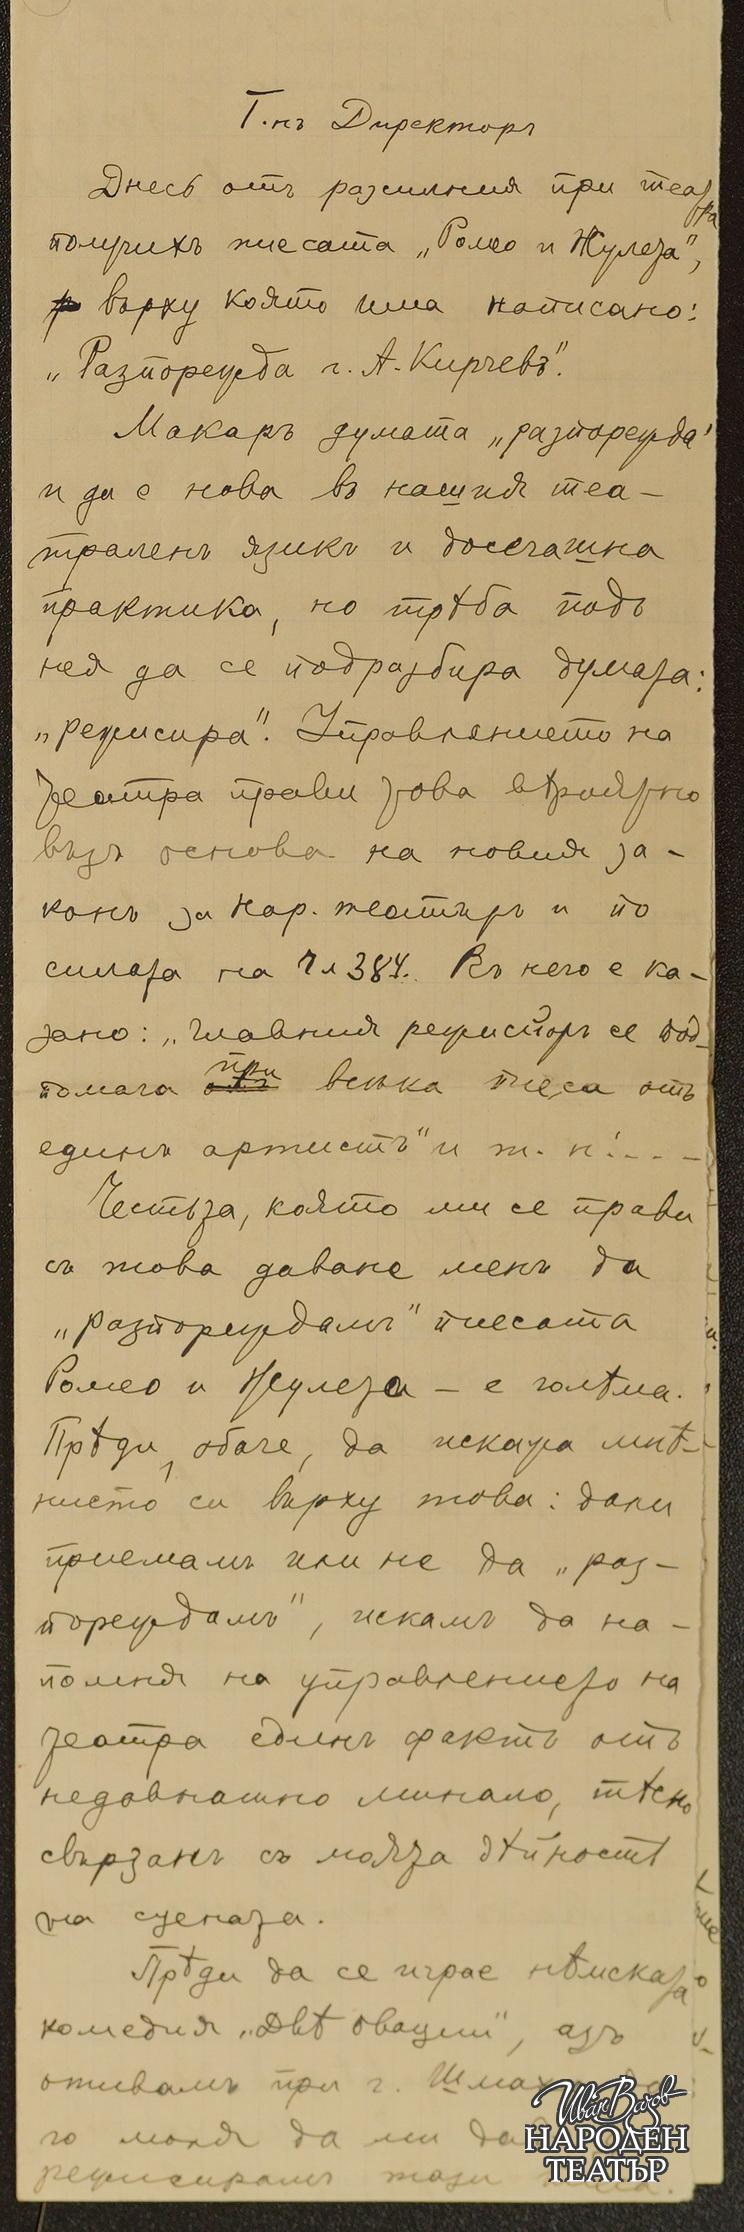 Г.нъ Директоръ
Днесь отъ разсилния при театра
получихъ пиесата „Ромео и Жулета",
върху която има написано:
„Разпорежда г. А. Кирчевъ".
Макаръ думата „разпорежда"
и да е нова въ нашия теа-
траленъ язикъ и досегашна
практика, но трѣба подъ
нея да се подразбира думата:
„режисира". Управлението на
театра прави това вѣроятно
възъ основа на новия за-
конъ за Нар. театъръ и по
силата на Чл 384. Въ него е ка-
зано: „главния режисйоръ се под-
помага отъ при всѣка пиеса отъ
единъ артистъ" и т. н!...-
Честьта, която ми се прави
съ това даване менъ да
„разпореждамъ" пиесата
Ромео и Жулета - е голѣма.
Прѣди, обаче, да искажа мнѣ-
нието си върху това: дали
приемамъ или не да „раз-
пореждамъ", искамъ да на-
помня на управлението на
театра единъ фактъ отъ
недавнашно минало, тѣсно
свързанъ съ моята дѣйность
на сцената.
Прѣди да се играе нѣмската
комедия „Двѣ овации", азъ
отивамъ при г. Шмаха да
го моля да ми даде
режисирамъ тази
Иван Вазов
НАРОДЕН
ТЕАТЪР